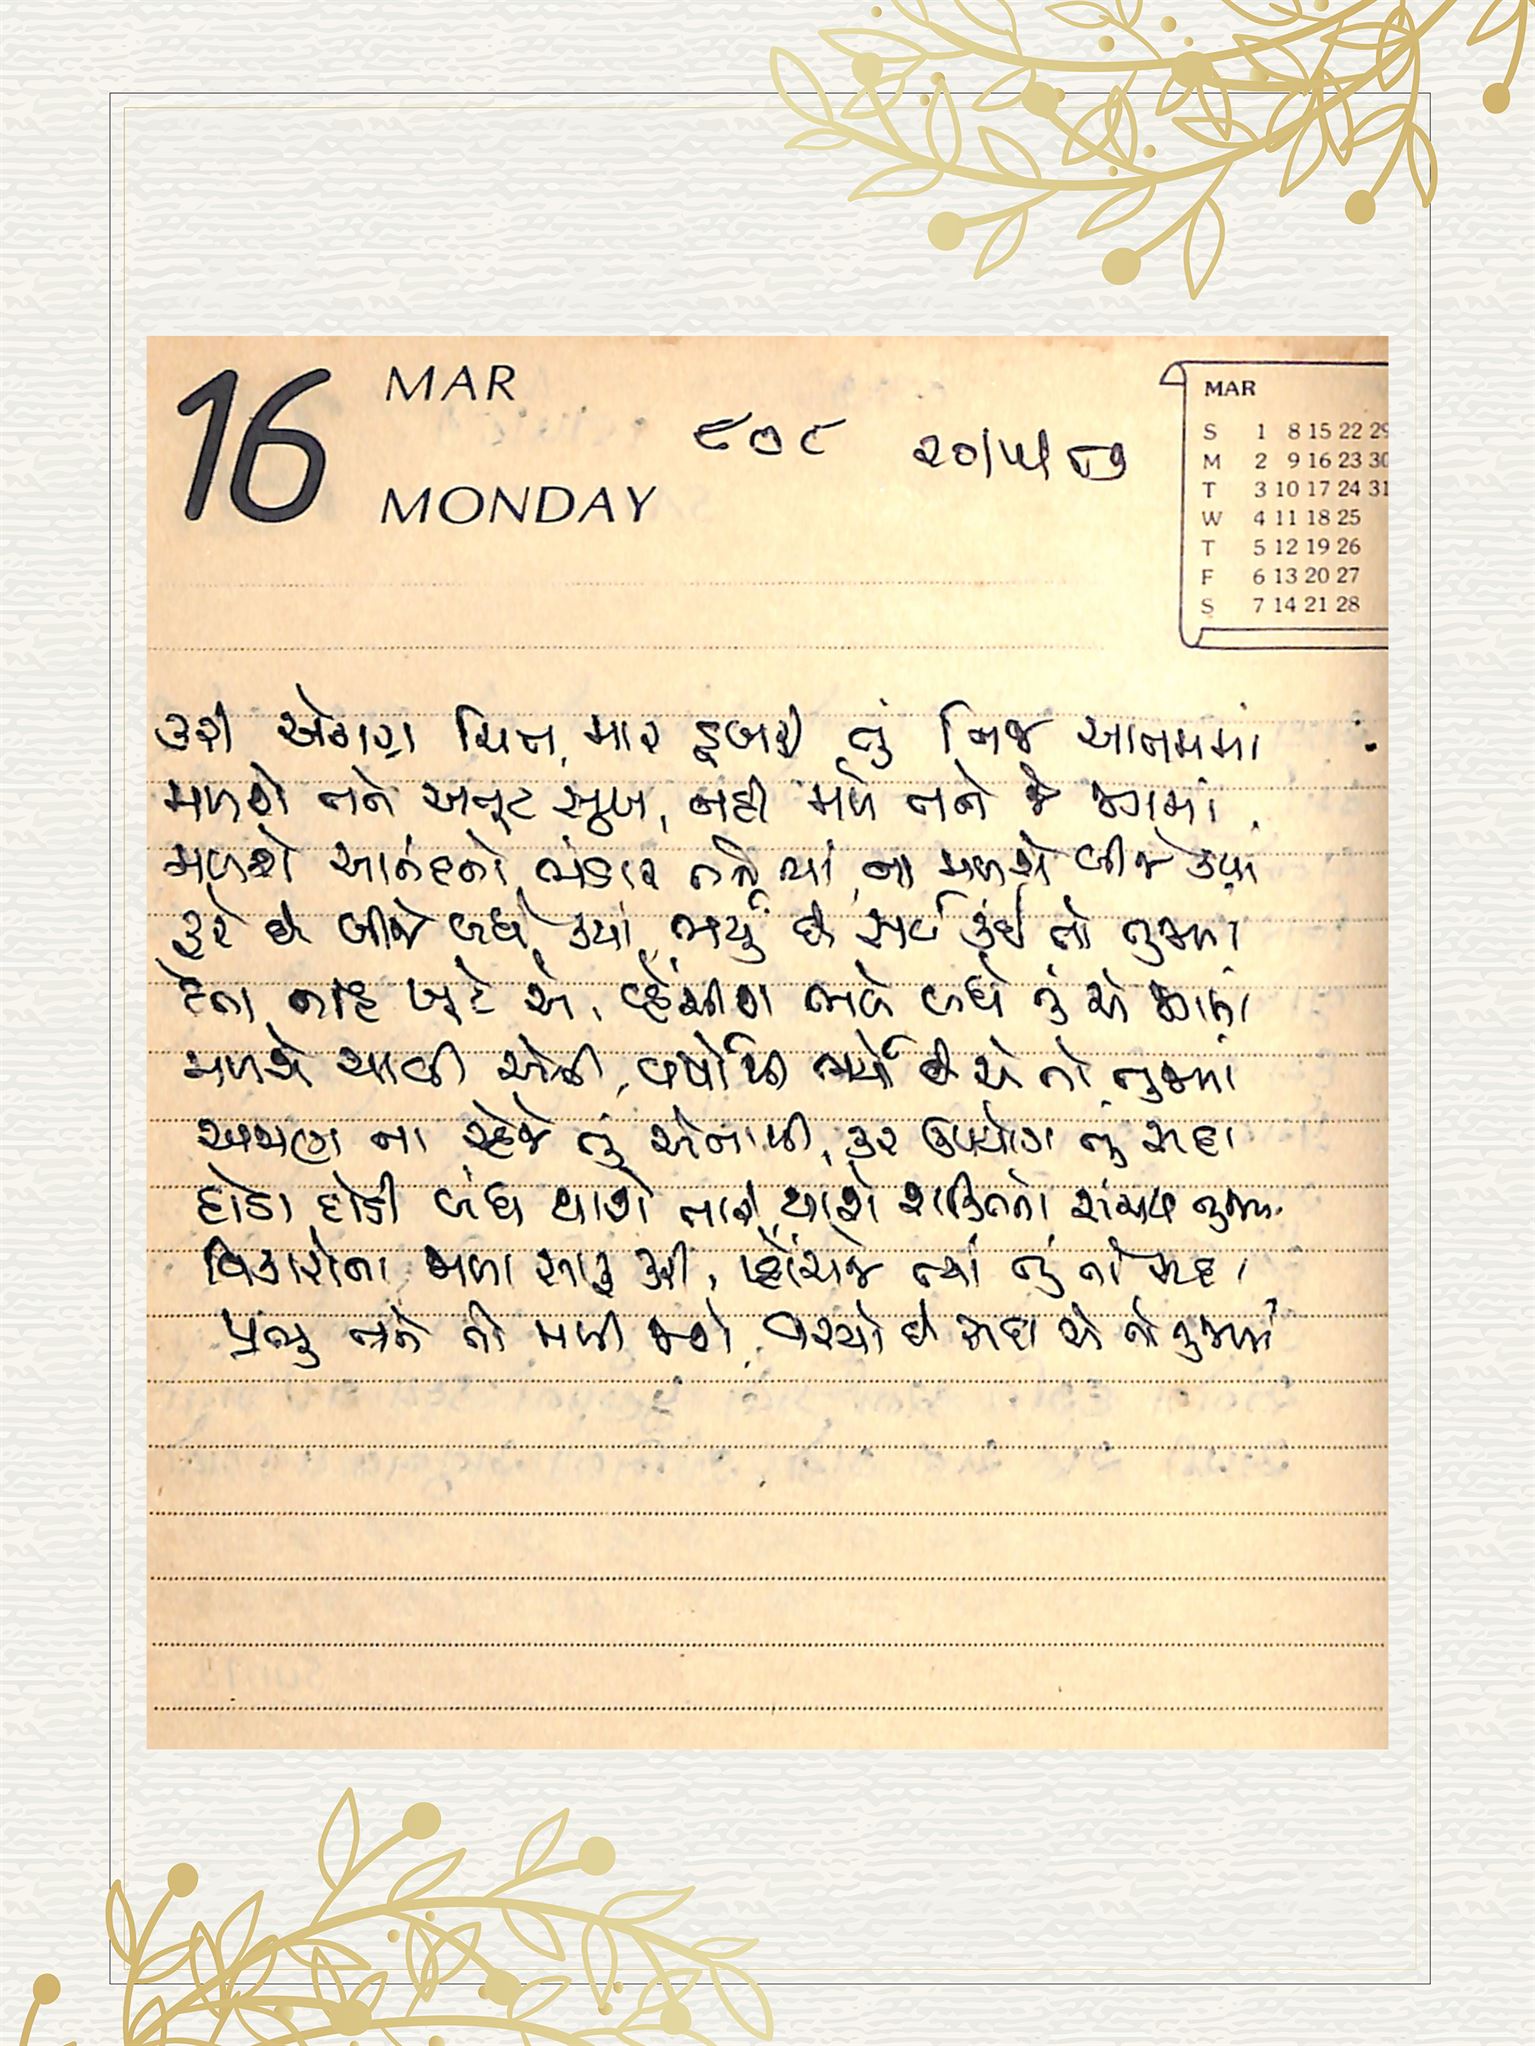 16 MAR
MONDAY
૯૦૮ ૨૦/૫/૮૭
MAR
S 1 8 15 22 29
M 2 9 16 23 30
T 3 10 17 24 31
W 4 11 18 25
T 5 12 19 26
F 6 13 20 27
S 7 14 21 28
કરી એકાગ્ર ચિત્ત, માર ડૂબકી તું નિજ આતમમાં
મળશે તને અખૂટ સુખ, નહીં મળે તને જે જગમાં
મળશે આનંદનો ભંડાર તને ત્યાં, ના મળશે બીજે ક્યાં
ફરે છે બીજે બધે ક્યાં, ભર્યું છે સર્વ કંઈ તો તુજમાં
દેતા નહિ ખૂટે એ, વ્હેંચીશ ભલે બધે તું એ જગમાં
મળશે ચાવી એની, વર્ષોથી ભર્યો છે એ તો તુજમાં
અજાણ ના રહેજે તું એનાથી, કર ઉપયોગ તું સદા
દોડા દોડી બંધ થાશે તારી, થાશે શક્તિનો સંચય તુજમાં
વિકારોના જાળા સાફ કરી, પ્હોંચજે ત્યાં તું તો સદા
પ્રભુ તને તો મળી જશે, વસ્યો છે સદા એ તો તુજમાં